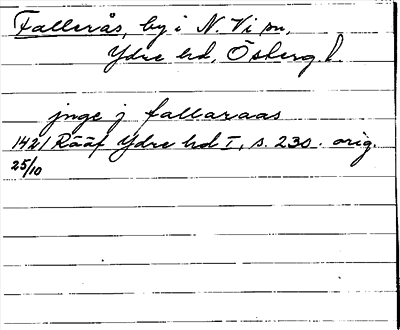 Fallerås, by i N. Vi sn,
Ydre hd, Ösberg. l.
jnge j fallaraas
1421 Rääf Ydre hd I, s. 230. orig.
25/10